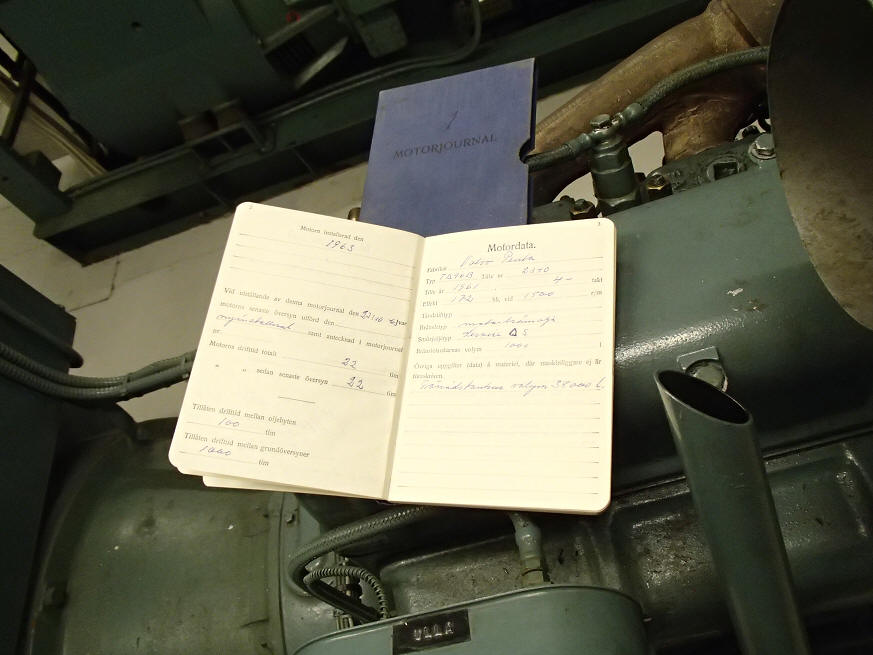 1
MOTORJOURNAL
Motorn installerad den
1963
Vid utställande av denna motorjournal den 22/10 63 var
motorns senaste översyn utförd den
nyinstallerad samt antecknad i motorjournal
nr.
Motorns drifttid totalt 22 tim
" " sedan senaste översyn 22 tim
Tillåten drifttid mellan oljebyten
100 tim
Tillåten drifttid mellan grundöversyner
1000 tim
3
Motordata.
Fabrikat Volvo Penta
Typ Tillv nr 2370
Tillv år 1961 4- takt
Effekt 172 hk vid 1500 r/m
Tändstifttyp
Bränsletyp motorbrännolja
Smörjoljetyp S
Bränsletankarnas volym 1000 l
Övriga uppgifter (data) å materiel, där maskinliggare ej är
föreskriven:
volym 39000 l.
ULLA